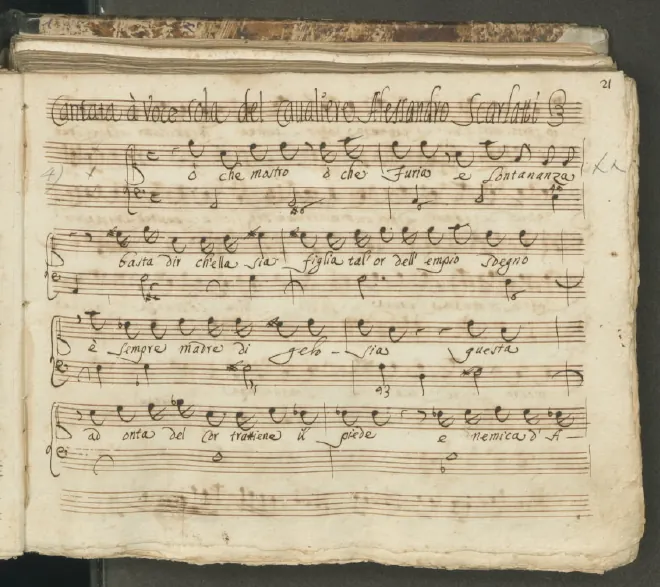 21
Cantata à Voce sola del Cavaliere Alessandro Scarlatti 3
ò che mostro ò che furia e Lontananza
basta dir ch'ella sia figlia tal' or dell' empio sdegno
è sempre madre di gelo - sia questa
ad onta del Cor trattiene il piede e nemica d' A -